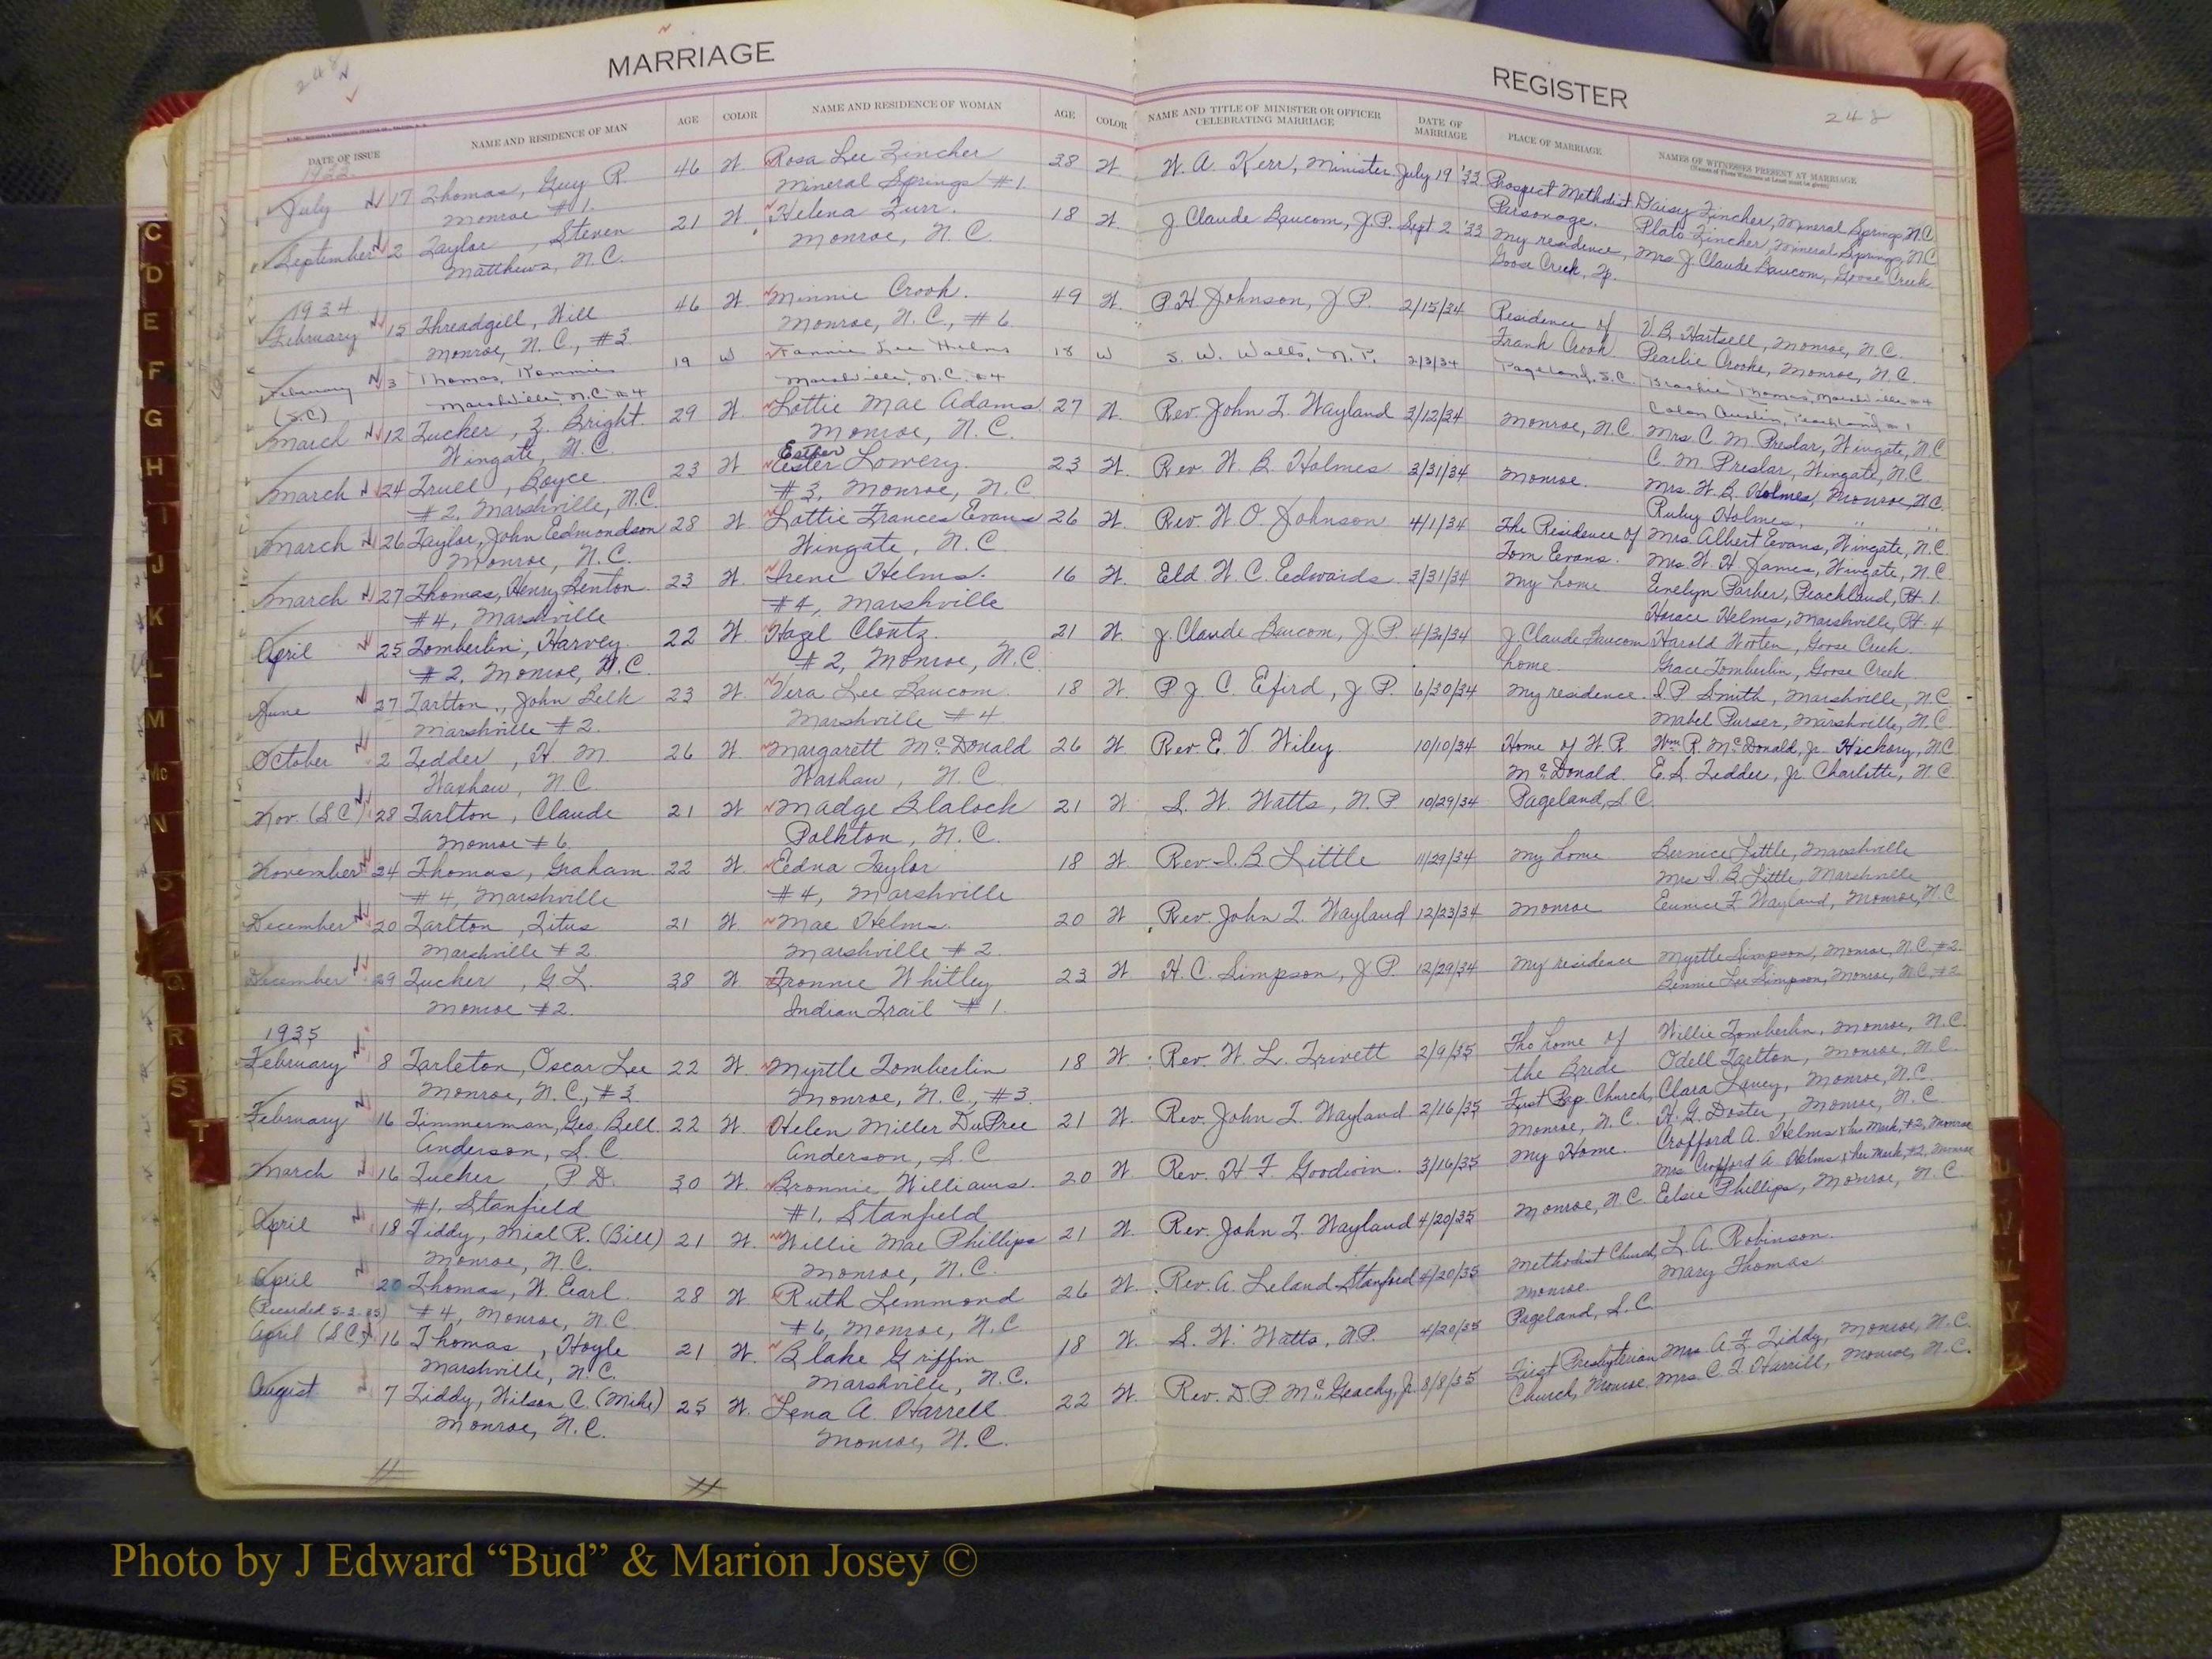 MARRIAGE REGISTER
248 248
DATE OF ISSUE NAME AND RESIDENCE OF MAN AGE COLOR NAME AND RESIDENCE OF WOMAN AGE COLOR NAME AND TITLE OF MINISTER OR OFFICER CELEBRATING MARRIAGE DATE OF MARRIAGE PLACE OF MARRIAGE NAMES OF WITNESSES PRESENT AT MARRIAGE
1933
July 17 Thomas, Guy R. 46 W. Rosa Lee Fincher 38 W. W. A. Kerr, Minister July 19 '33 Prospect Methodist Daisy Fincher, Mineral Springs, N.C.
Monroe #1. Mineral Springs #1. Parsonage. Plato Fincher, Mineral Springs, N.C.
September 2 Taylor, Steven 21 W. Helena Furr. 18 W. J. Claude Baucom, J.P. Sept 2 '33 My residence, Mrs J Claude Baucom, Goose Creek
Matthews, N.C. Monroe, N.C. Goose Creek, Tp.
1934
February 15 Threadgill, Will 46 W. Minnie Crook. 49 W. P. H. Johnson, J P. 2/15/34 Residence of V. B. Hartsell, Monroe, N.C.
Monroe, N.C., #3. Monroe, N.C., #6 Frank Crook. Pearlie Crooke, Monroe, N.C.
February 3 Thomas, Kemmie 19 W Fannie Lee Helms 18 W S. W. Watts, N.P. 2/3/34 Pageland, S.C. Thomas, Marshville #4
(S.C.) Marshville, N.C. #4 Marshville, N.C. #4 Colon Austin, Peachland, #1
March 12 Tucker, Z. Bright. 29 W. Lottie Mae Adams 27 W. Rev. John T. Wayland 3/12/34 Monroe, N.C. Mrs. C. M. Preslar, Wingate, N.C.
Wingate, N.C. Monroe, N.C. C. M. Preslar, Wingate, N.C.
March 24 Truell, Boyce 23 W Esther Ester Lowery. 23 W. Rev W. B. Holmes 3/31/34 Monroe. Mrs. W. B. Holmes, Monroe, N.C.
#2, Marshville, N.C. #3, Monroe, N.C. Ruby Holmes, " "
March 26 Taylor, John Edmondson 28 W. Lottie Frances Evans 26 W. Rev. W. O. Johnson 4/1/34 The Residence of Mrs. Albert Evans, Wingate, N.C.
Monroe, N.C. Wingate, N.C. Tom Evans. Mrs. W. H. James, Wingate, N.C
March 27 Thomas, Henry Benton 23 W. Irene Helms. 16 W. Eld. W C. Edwards 3/31/34 My home Evelyn Parker, Peachland, Rt. 1.
#4, Marshville #4, Marshville Horace Helms, Marshville, Rt. 4
April 25 Tomberlin, Harvey 22 W. Hazel Clontz. 21 W. J. Claude Baucom, J.P. 4/30/34 J Claude Baucom Harold Wooten, Goose Creek.
#2, Monroe, N.C. #2, Monroe, N.C. home. Grace Tomberlin, Goose Creek
June 27 Tarlton, John Belk 23 W. Vera Lee Baucom 18 W P J. C. Efird, J P. 6/30/34 My residence. S P Smith, Marshville, N.C
Marshville #2. Marshville #4 Mabel Purser, Marshville, N.C.
October 2 Tedder, H M. 26 W. Margarett McDonald 26 W Rev. E. V. Wiley 10/10/34 Home of W. R. Wm R. McDonald, Jr. Hickory, N.C
Waxhaw, N.C. Waxhaw, N.C. McDonald. E. S. Tedder, Jr Charlotte, N.C
Nov. (S.C.) 28 Tarlton, Claude 21 W Madge Blalock 21 W S. W. Watts, N.P 10/29/34 Pageland, S.C.
Monroe #6 Polkton, N.C.
November 24 Thomas, Graham 22 W. Edna Taylor 18 W. Rev. I. B. Little 11/29/34 My home Bernice Little, Marshville
#4, Marshville #4, Marshville Mrs I. B. Little, Marshville
December 20 Tarlton, Titus 21 W. Mae Helms. 20 W Rev. John T. Wayland 12/23/34 Monroe Eunice F Wayland, Monroe, N.C
Marshville #2. Marshville #2.
December 29 Tucker, G L. 38 W Fronnie Whitley 23 W H. C. Simpson, J P. 12/29/34 My residence Myrtle Simpson, Monroe, N.C. #2
Monroe #2. Indian Trail #1. Bennie Lee Simpson, Monroe, N.C. #2
1935
February 8 Tarleton, Oscar Lee 22 W. Myrtle Tomberlin 18 W. Rev. W. L. Trivett 2/9/35 The home of Willie Tomberlin, Monroe, N.C.
Monroe, N.C., #3 Monroe, N.C., #3. the Bride Odell Tarlton, Monroe, N.C.
February 16 Timmerman, Geo. Bell. 22 W. Helen Miller DuPree 21 W. Rev. John T. Wayland 2/16/35 First Bap. Church, Clara Laney, Monroe, N.C.
Anderson, S.C Anderson, S.C Monroe, N.C. H. G. Doster, Monroe, N.C.
March 16 Tucker, P D. 30 W. Bronnie Williams. 20 W Rev. H F Goodwin. 3/16/35 My Home. Crofford A. Helms x his Mark, #2, Monroe
#1, Stanfield #1, Stanfield Mrs Crofford A. Helms x her Mark, #2, Monroe
April 18 Tiddy, Mial R. (Bill) 21 W. Willie Mae Phillips 21 W. Rev. John T. Wayland 4/20/35 Monroe, N.C. Elsie Phillips, Monroe, N.C.
Monroe, N.C. Monroe, N.C.
April 20 Thomas, W. Earl. 28 W Ruth Lemmond 26 W. Rev. A. Leland Stanford 4/20/35 Methodist Church, L. A. Robinson.
(Recorded 5-2-35) #4, Monroe, N.C. #6, Monroe, N.C Monroe. Mary Thomas
April (S.C.) 16 Thomas, Hoyle 21 W. Blake Griffin 18 W. S. W. Watts, N.P. 4/20/35 Pageland, S.C.
Marshville, N.C. Marshville, N.C.
August 7 Tiddy, Wilson C. (Mike) 25 W. Lena A. Harrell 22 W. Rev. D. P. McGeachy, Jr. 8/8/35 First Presbyterian Mrs. A. F. Tiddy, Monroe, N.C.
Monroe, N.C. Monroe, N.C. Church, Monroe. Mrs C. T. Harrill, Monroe, N.C.
C
D
E
F
G
H
I
J
K
L
M
Mc
N
O
Q
R
S
T
V
W
Y
Photo by J Edward “Bud” & Marion Josey ©